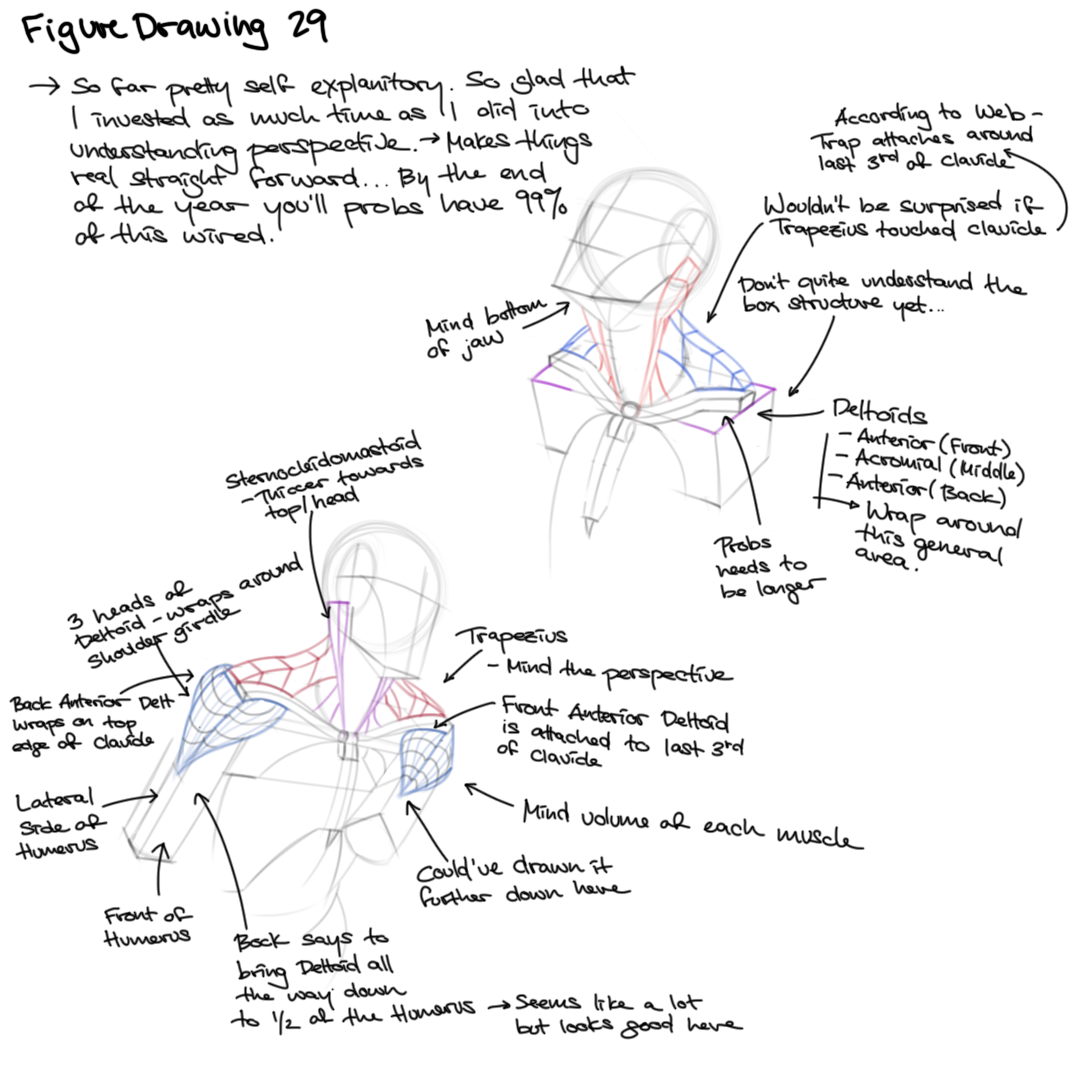 Figure Drawing 29
→ So far pretty self explanitory. So glad that
I invested as much time as I did into
understanding perspective. → Makes things
real straight forward... By the end
of the year you'll probs have 99%
of this wired.
According to Web -
Trap attaches around
last 3rd of clavicle
Wouldn't be surprised if
Trapezius touched clavicle
Don't quite understand the
box structure yet...
Mind bottom
of jaw
Deltoids
- Anterior (Front)
- Acromial (Middle)
- Anterior (Back)
→ Wrap around
this general
area.
Probs
needs to
be longer
Sternocleidomastoid
- Thiccer towards
top/head
3 heads of
Deltoid - wraps around
shoulder girdle
Back Anterior Delt
wraps on top
edge of Clavicle
Trapezius
- Mind the perspective
Front Anterior Deltoid
is attached to last 3rd
of Clavicle
Lateral
Side of
Humerus
Mind volume of each muscle
Could've drawn it
further down here
Front of
Humerus
Bock says to
bring Deltoid all
the way down
to 1/2 of the Humerus → Seems like a lot
but looks good here